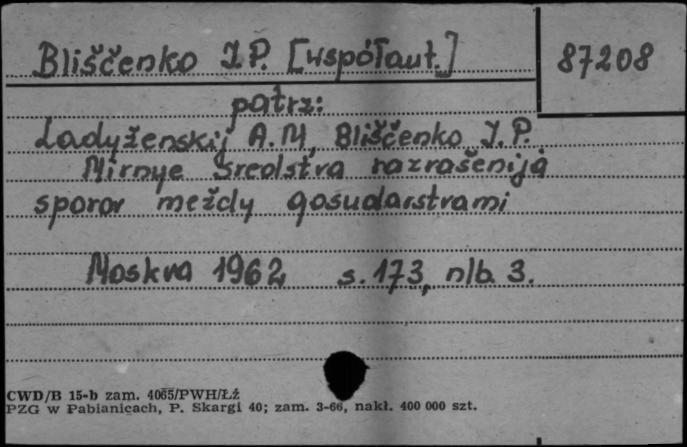 Bliščenko I.P. [współaut.]
87208
patrz:
Ladyženskij A.M, Bliščenko I.P.
Mirnye sredstva razrašenija
sporov meždy gosudarstvami
Moskva 1962 s. 173, nlb. 3.
CWD/B 15-b zam. 4065/PWH/Łź
PZG w Pabianicach, P. Skargi 40; zam. 3-66, nakł. 400 000 szt.